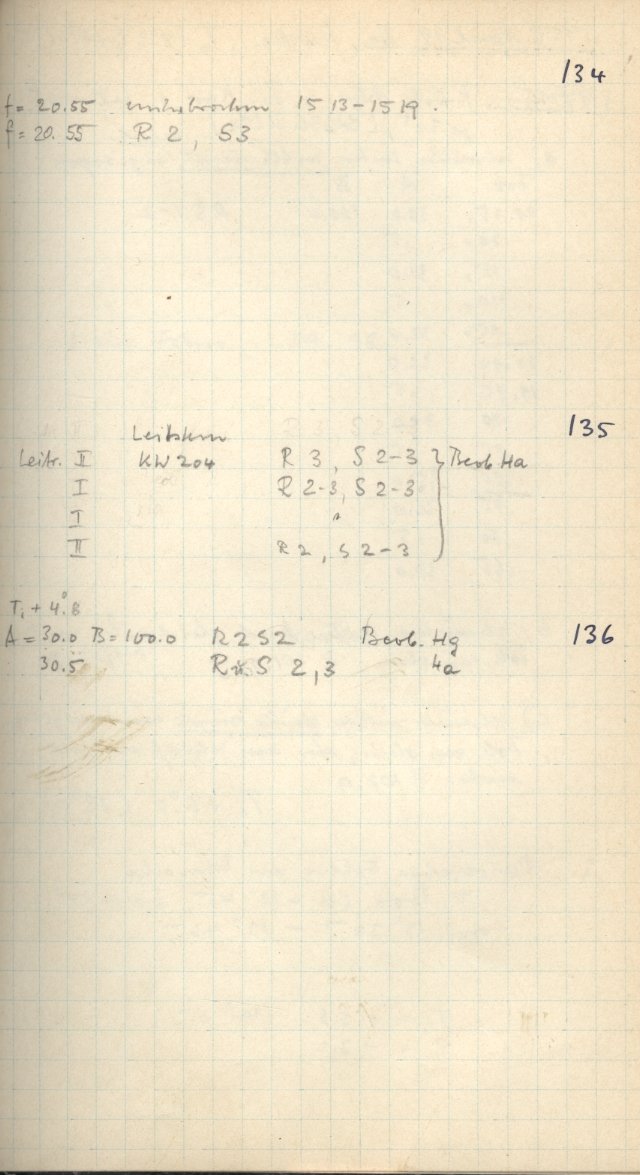 134
f = 20.55 unterbrochen 15 13 - 15 19.
f = 20.55 R 2, S3
135
Leitstern
Leitr. II KW 204 R 3, S 2-3 } Beob. Ha
I R 2-3, S 2-3
I "
II R 2, S 2-3
T. + 4.°8
A = 30.0 B = 100.0 R2 S2 Beob. Hg 136
30.5 R S 2,3 Ha